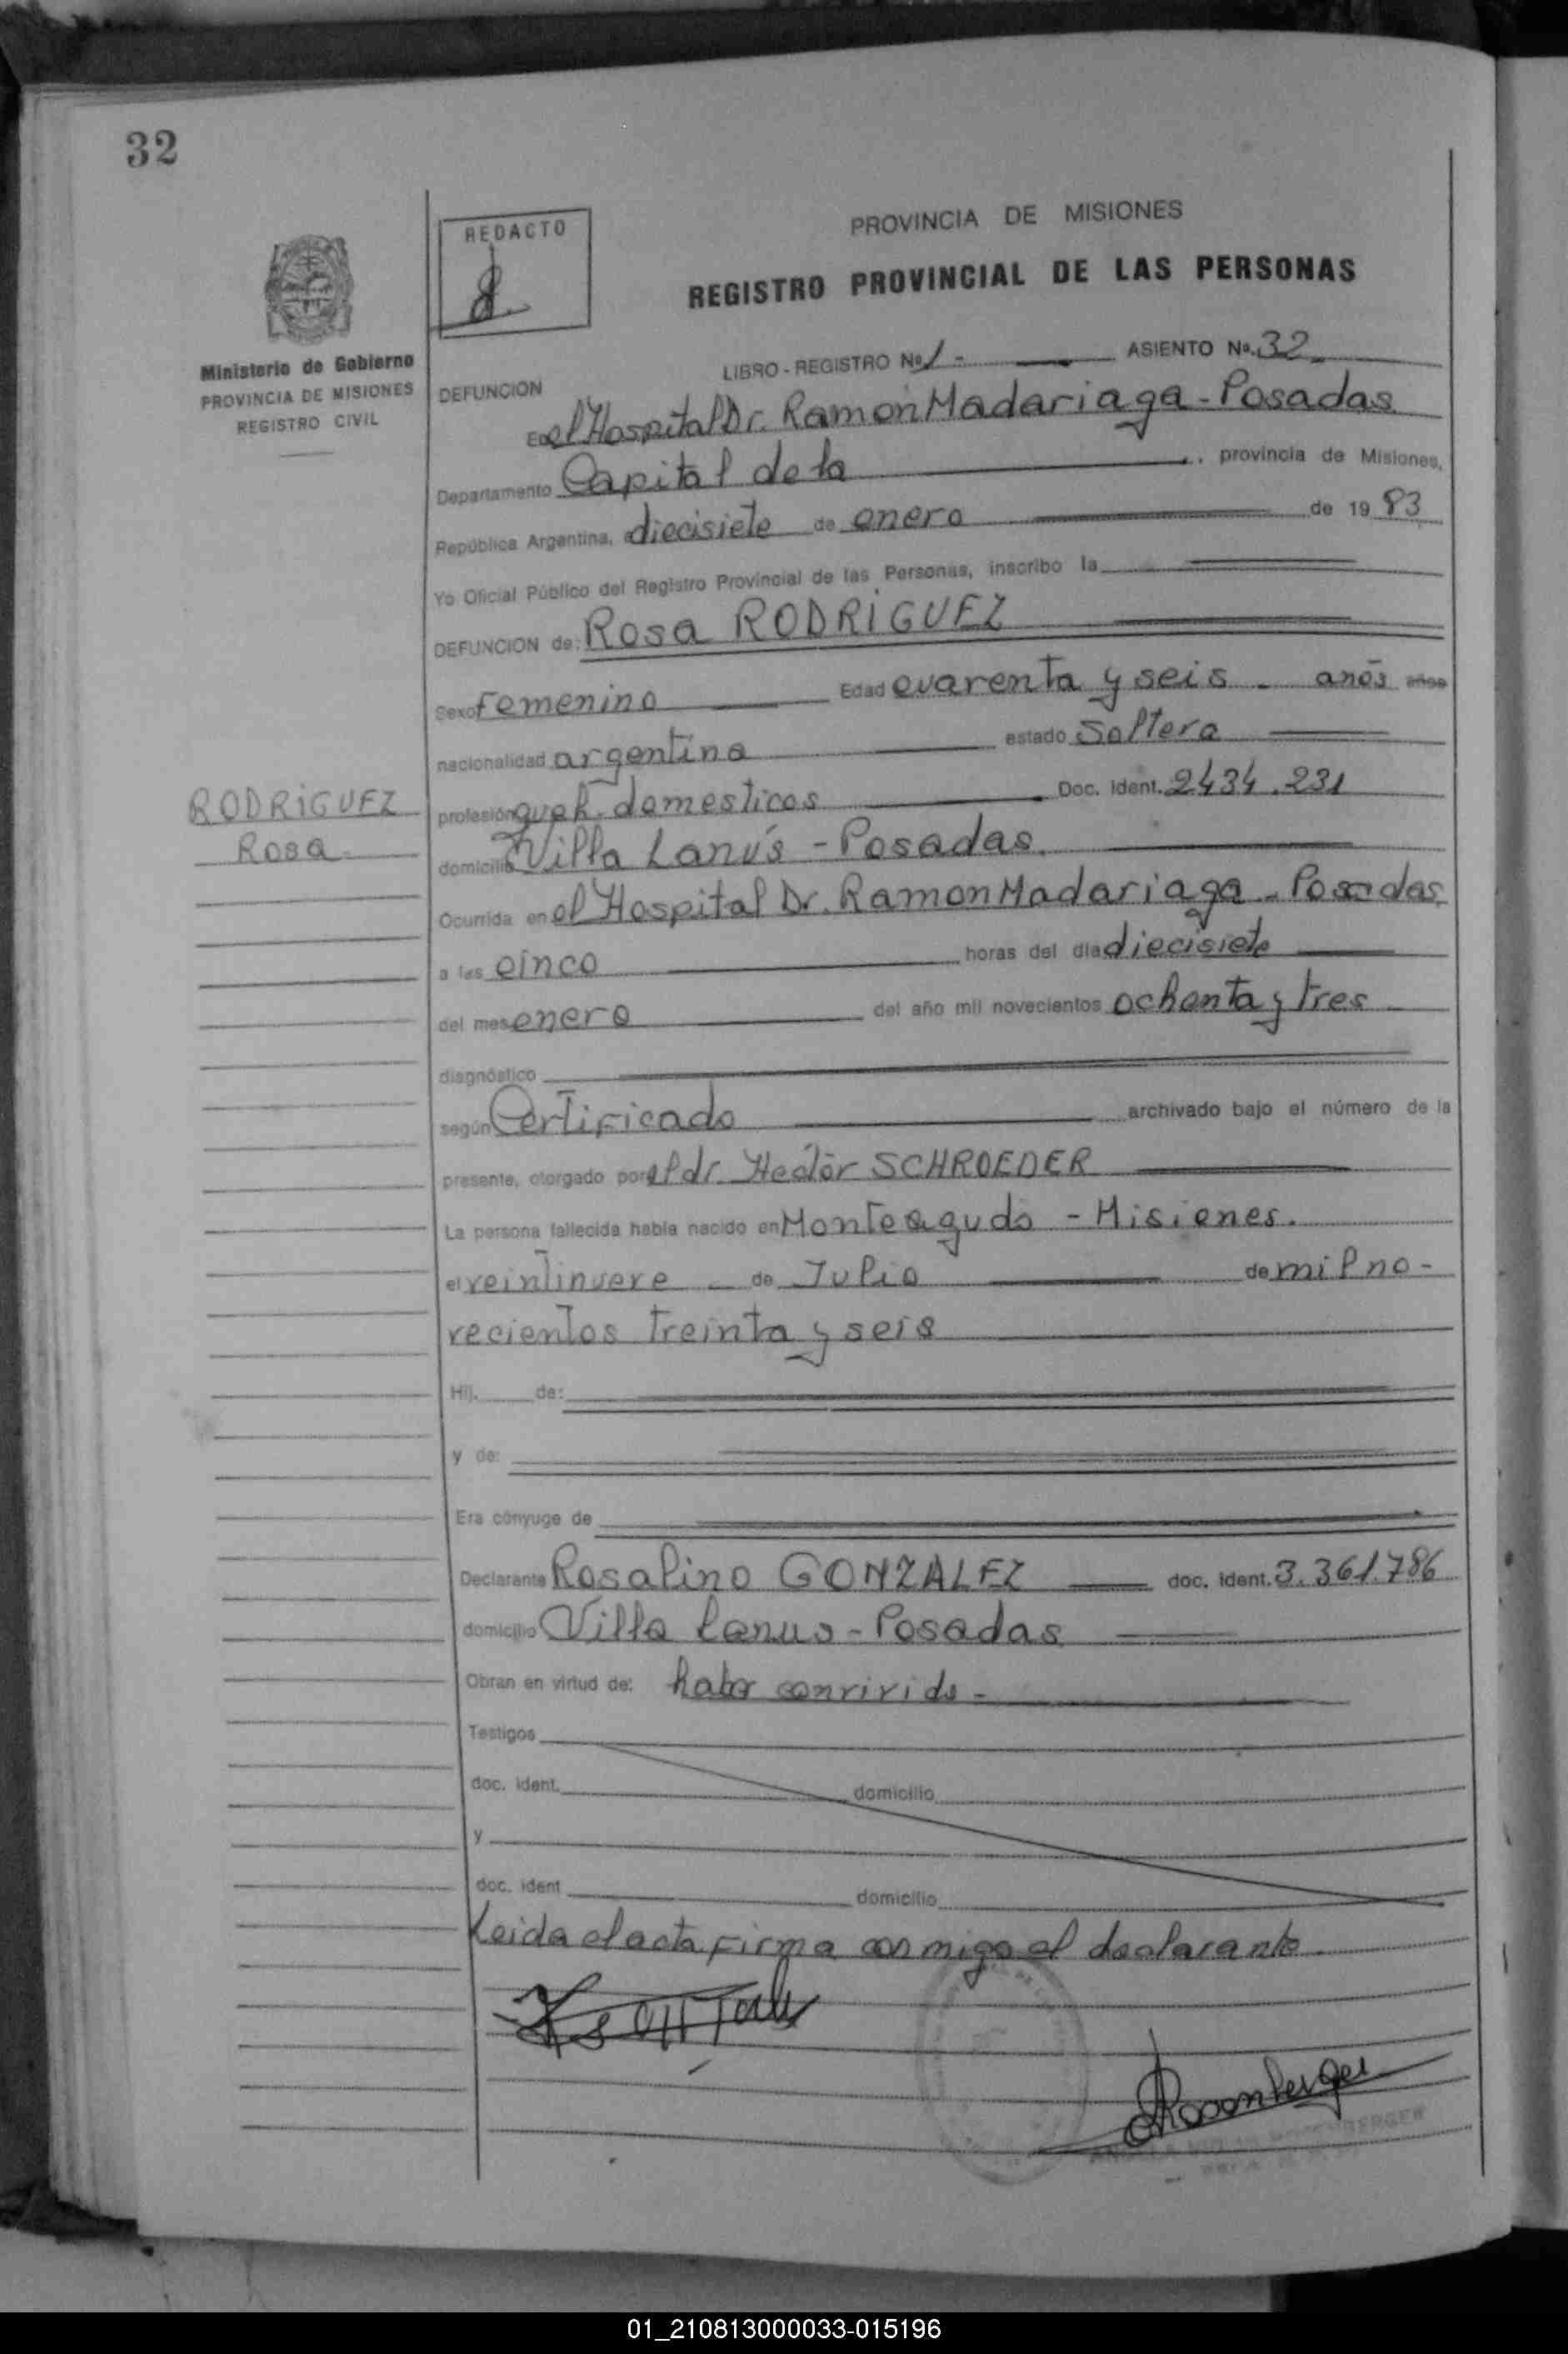 32
REDACTO
PROVINCIA DE MISIONES
REGISTRO PROVINCIAL DE LAS PERSONAS
Ministerio de Gobierno
PROVINCIA DE MISIONES
REGISTRO CIVIL
LIBRO - REGISTRO Nº 1 - ASIENTO Nº 32
DEFUNCION
En el Hospital Dr. Ramon Madariaga - Posadas
Departamento Capital de la provincia de Misiones,
República Argentina, a diecisiete de enero de 1983
Yo Oficial Público del Registro Provincial de las Personas, inscribo la
DEFUNCION de: Rosa RODRIGUEZ
Sexo Femenino Edad cuarenta y seis - años años
nacionalidad argentina estado Soltera
RODRIGUEZ
Rosa
profesión queh. domesticos Doc. Ident. 2434.231
domicilio Villa Lanús - Posadas.
Ocurrida en el Hospital Dr. Ramon Madariaga - Posadas
a las cinco horas del día diecisiete
del mes enero del año mil novecientos ochenta y tres
diagnóstico
según Certificado archivado bajo el número de la
presente, otorgado por el dr. Hector SCHROEDER
La persona fallecida había nacido en Monteagudo - Misiones.
el veintinueve - de Julio de mil no-
vecientos treinta y seis
Hij. de:
y de:
Era cónyuge de
Declarante Rosalino GONZALEZ doc. ident. 3.361.786
domicilio Villa Lanus - Posadas
Obran en virtud de: haber convivido -
Testigos
doc. ident. domicilio
y
doc. ident domicilio
Leida el acta firma conmigo el declarante
01_210813000033-015196